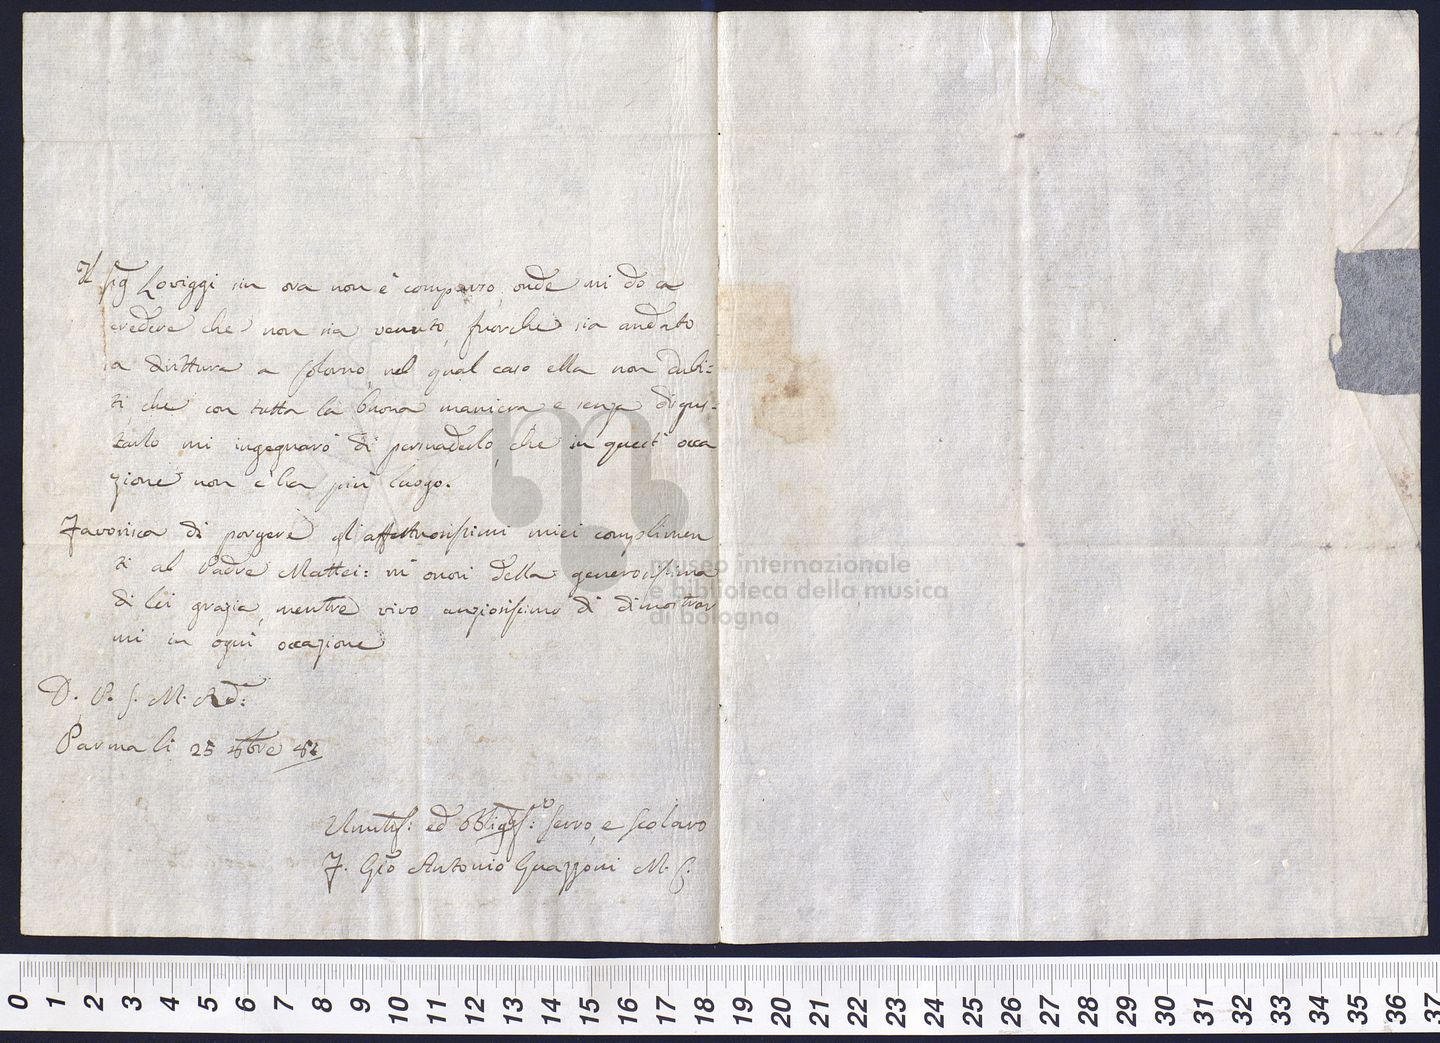 Il Sig Loviggi sin ora non è comparso, onde mi do a
credere che non sia venuto, fuorche sia andato
a diritura a Colorno, nel qual caso ella non dubi:
ti, che con tutta la buona maniera e senza disgus-
tarlo mi ingegnarò di persuaderlo, che in questi occa
zione non c'ha più luogo.
Favorisca di porgere gl'affettuosissimi miei complimen
ti al Padre Mattei: mi onori della generosissima
di lei grazia, mentre vivo anziosissimo di dimostrar
mi in ogni occazione
D. V. S. M. Rd:
Parma li 25 bre
Umilis: ed Obligss:mo Servo, e Scolaro
F. Gio Antonio Guazzoni M. C.
museo internazionale
e biblioteca della musica
di bologna
0 1 2 3 4 5 6 7 8 9 10 11 12 13 14 15 16 17 18 19 20 21 22 23 24 25 26 27 28 29 30 31 32 33 34 35 36 37